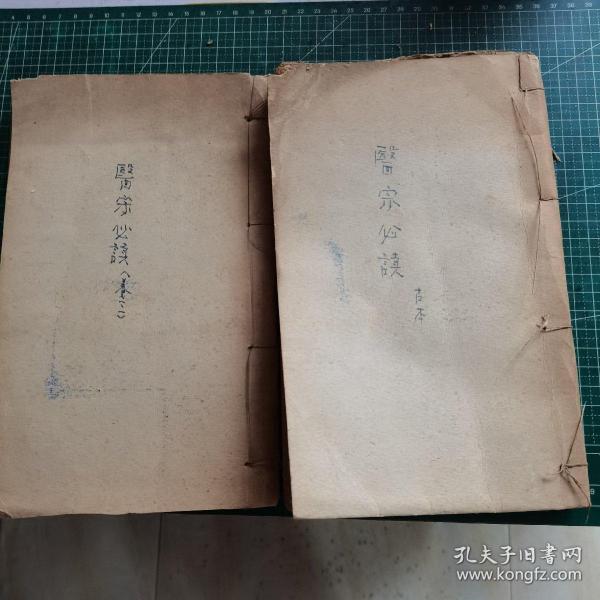 醫宗必讀
古本
醫宗必讀(卷
孔夫子旧书网
www.kongfz.com